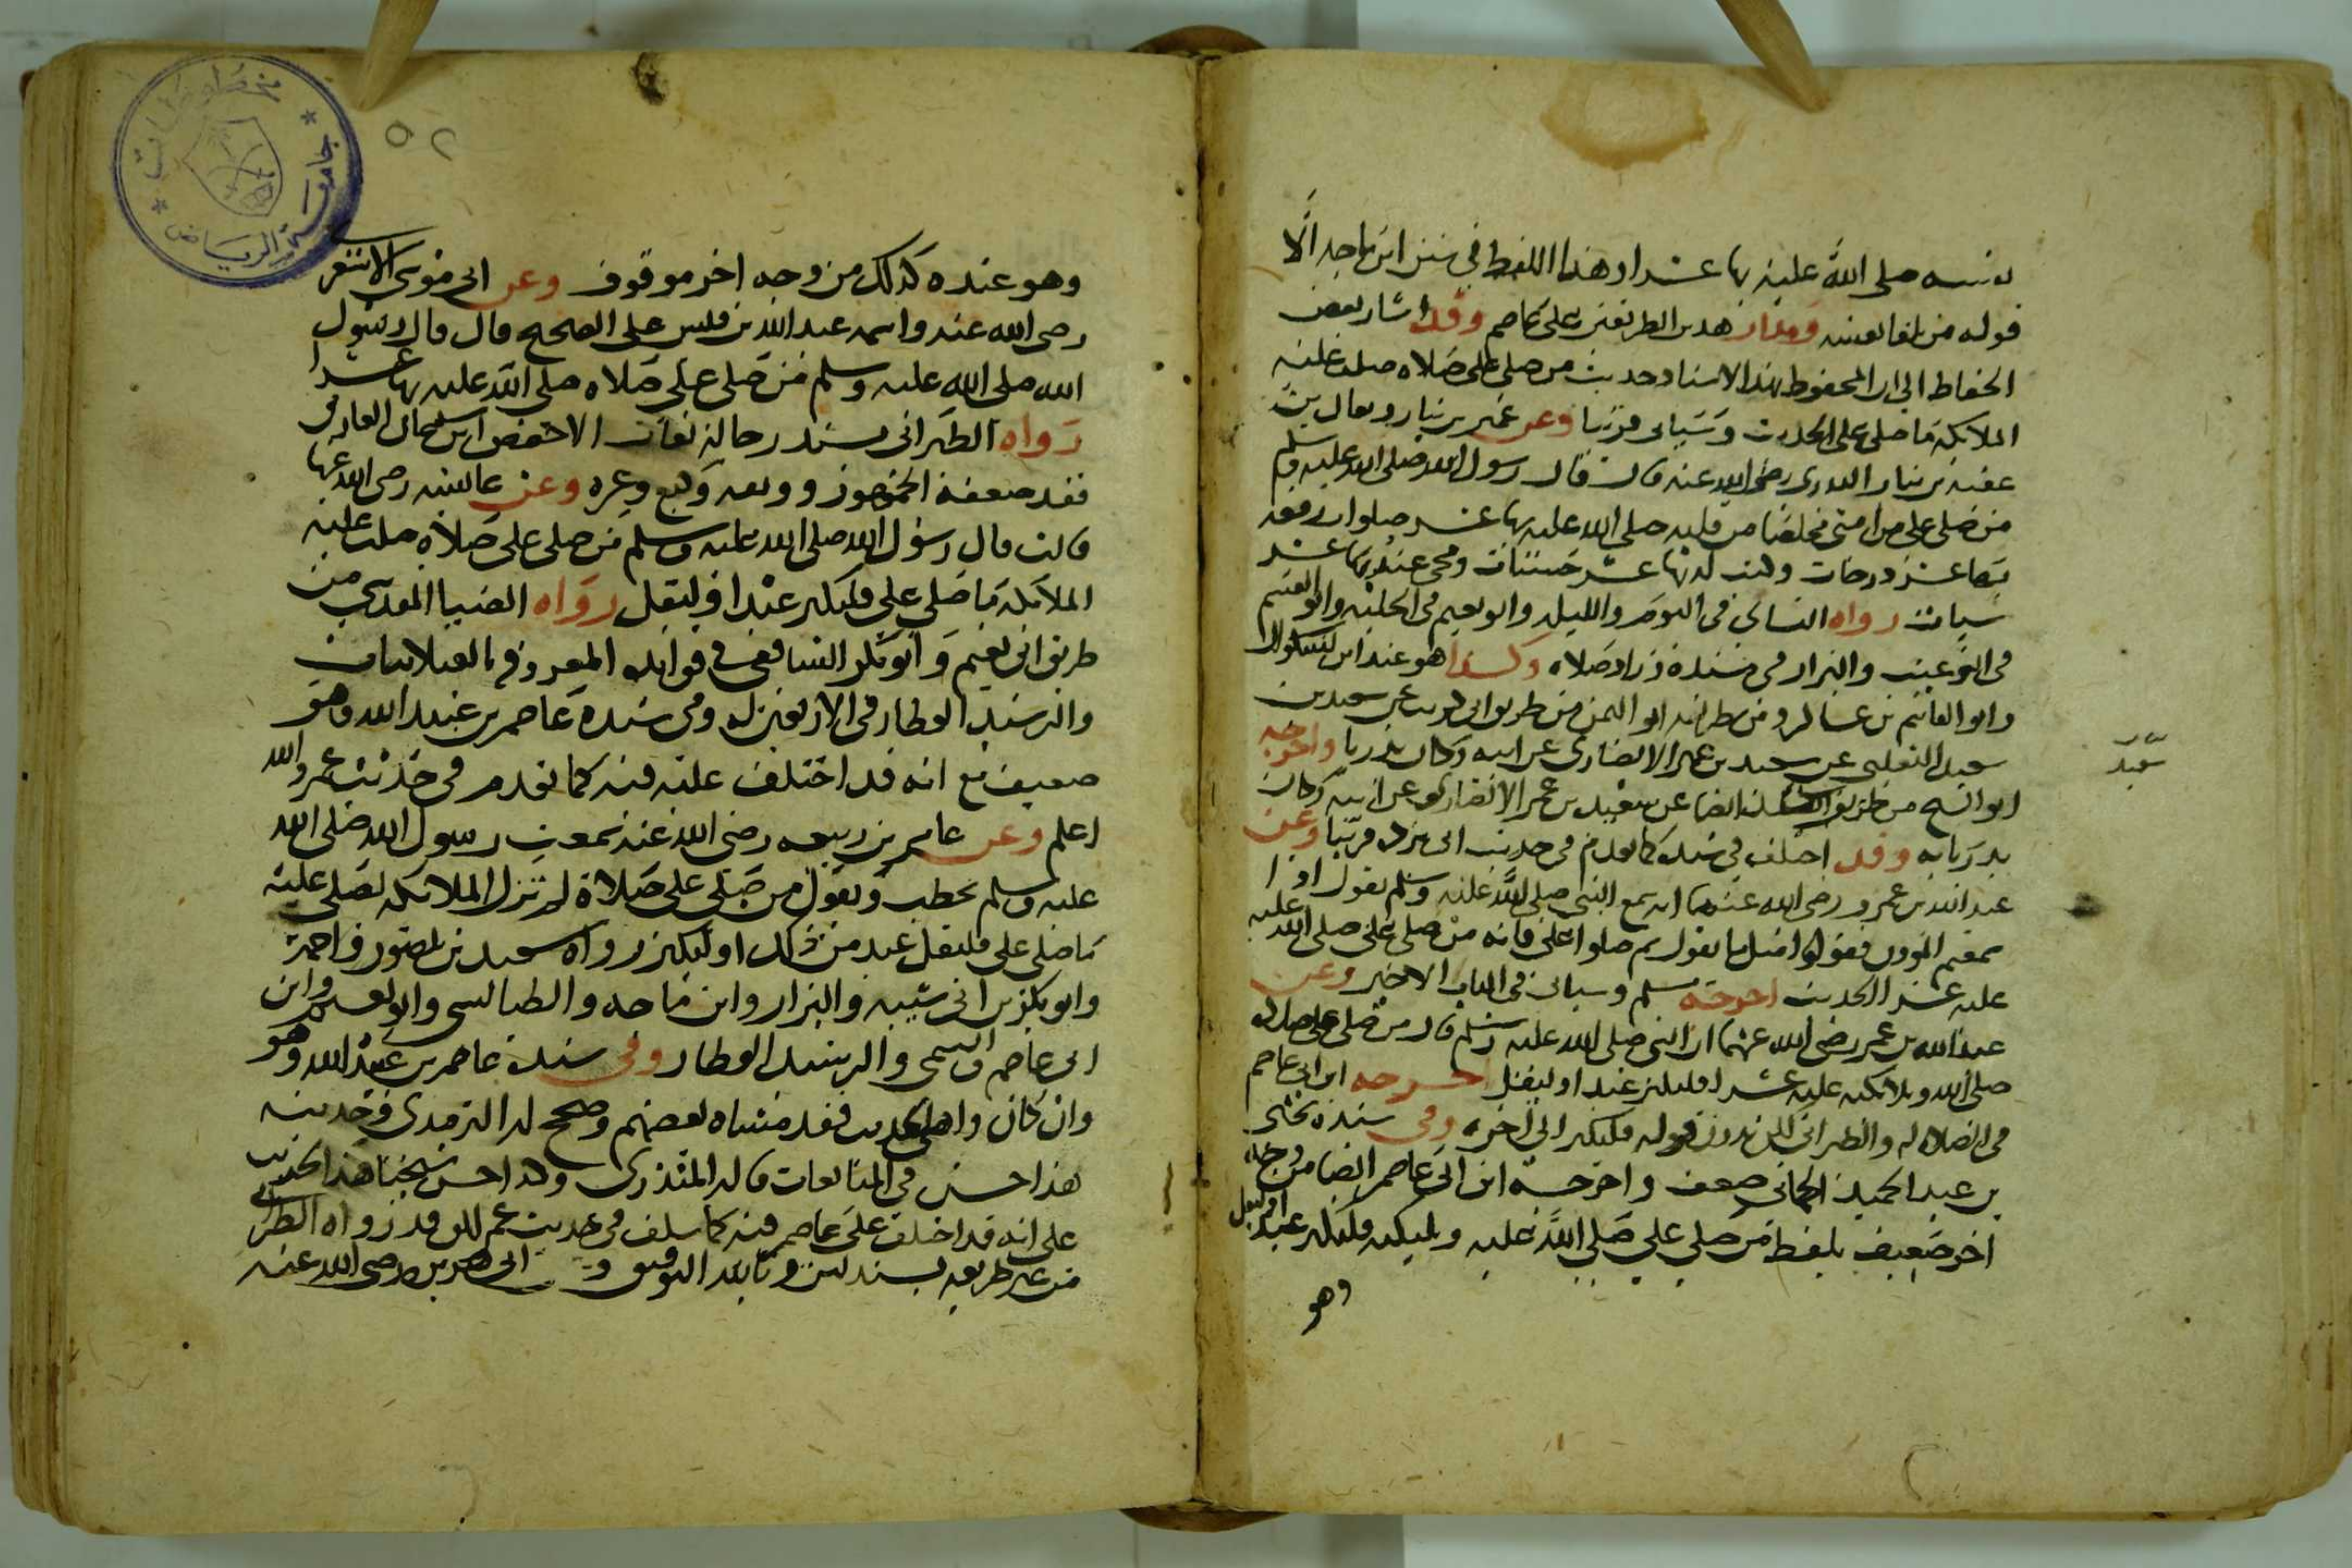 نفسه صلى الله عليه بها عشرا وهذا اللفظ في سنن ابن ماجه الا
قوله من تلقا نفسه ومدار هذين الطريقين على عاصم وقد اشار بعض
الحفاظ الى ان المحفوظ بهذا الاسناد حديث من صلى على صلاه صلت عليه
الملايكة ما صلى على الحديث وسياتي قريبا وعن عمير بن نيار ويقال بن
عقبة بن نيار البدري رضي الله عنه قال قال رسول الله صلى الله عليه وسلم
من صلى على من امتي مخلصا من قلبه صلى الله عليه بها عشر صلوات ورفعه
بها عشر درجات وكتب له بها عشر حسنات ومحى عنه بها عشر
سيات رواه النساي في اليوم والليلة وابو نعيم في الحلية وابو القسم
في الترغيب والبزار في مسنده وزاد صلاه وكذا هو عند ابن بشكوال
وابو القاسم بن عساكر ومن طريقه ابو اليمن من طريق ابي عن سعيد بن
سعيد التغلبي عن سعيد بن عمير الانصاري عن ابيه وكان بدريا واخرجه
ابو الشيخ من طريق ايضا عن سعيد بن عمير الانصاري عن ابيه وكان
بدريا به وقد اختلف في سنده كما تقدم في حديث ابي بردة قريبا وعن
عبد الله بن عمرو رضي الله عنهما انه سمع النبي صلى الله عليه وسلم يقول اذا
سمعتم الموذن فقولوا مثل ما يقول ثم صلوا على فانه من صلى على صلى الله عليه
عليه عشرا الحديث اخرجه مسلم وسياتي في الباب الاخير وعن
عبد الله بن عمر رضي الله عنهما ان النبي صلى الله عليه وسلم قال من صلى على صلاه
صلى الله وملايكته عليه عشرا فليكثر عبد او ليقل اخرجه ابن ابي عاصم
في الصلاه له والطبراني لكن بدون قوله فليكثر الى اخره وفي سنده يحيى
بن عبد الحميد الحماني ضعيف واخرجه ابن ابي عاصم ايضا من وجه
اخر ضعيف بلفظ من صلى على صلى الله عليه وملايكته فليكثر عبد او ليقل
وهو
سعيد
٥٢
وهو عنده كذلك من وجه اخر موقوف وعن ابي موسى الاشعر
رضي الله عنه واسمه عبد الله بن قيس على الصحيح قال قال رسول
الله صلى الله عليه وسلم من صلى على صلاه صلى الله عليه بها عشرا
رواه الطبراني بسند رجاله ثقات الا حفص ابن سليمان القاري
فقد ضعفه الجمهور ووثقه وكيع وغيره وعن عايشه رضي الله عنها
قالت قال رسول الله صلى الله عليه وسلم من صلى على صلاه صلت عليه
الملايكة ما صلى على فليكثر عبد او ليقل رواه الضيا المقدسي من
طريق ابي نعيم وابو بكر الشافعي في فوايده المعروفه بالغيلانيات
والرشيد العطار في الاربعين له وفي سنده عاصم بن عبيد الله وهو
ضعيف مع انه قد اختلف عليه فيه كما تقدم في حديث عمر والله
اعلم وعن عامر بن ربيعه رضي الله عنه سمعت رسول الله صلى الله
عليه وسلم يخطب ويقول من صلى على صلاة لم تزل الملايكة تصلي عليه
ما صلى على فليقل عبد من ذلك او ليكثر رواه سعيد بن منصور واحمد
وابو بكر بن ابي شيبه والبزار وابن ماجه والطيالسي وابو نعيم وابن
ابي عاصم والتيمي والرشيد العطار وفي سنده عاصم بن عبيد الله وهو
وان كان واهي الحديث فقد مشاه بعضهم وصحح له الترمذي وحديثه
هذا حسن في المتابعات قاله المنذري وكذا حسن شيخنا هذا الحديث
على انه قد اختلف على عاصم فيه كما سلف في حديث عمر لكن قد رواه الطبراني
من غير طريقه بسند لين وبالله التوفيق وعن ابي هريرة رضي الله عنه
مخطوطات
جامعة الرياض